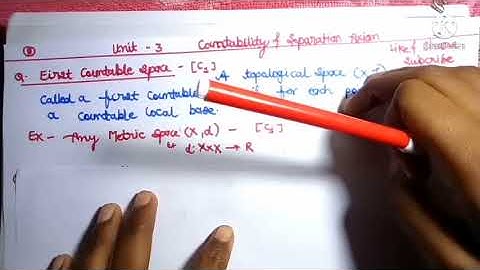 Unit - 3 Countability & Separation Axiom
Like & Share
Subcribe
Q. First Countable Space - [C₁] A topological Space (X,
called a first countable is for each po
a countable local base.
Ex - Any Metric Space (X, d) - [C₁]
d: X×X → R